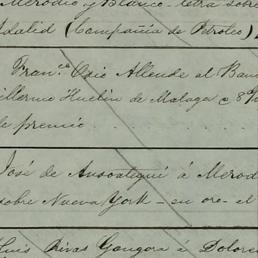 Merodio y Blanco - letra sobre
Adalid (Compañia de Petroleo)
Fran.co Osio Allende al Ban
Guillermo Huelin de Malaga
de premio
José de Ansoategui á Merod
sobre Nueva York - en oro - el
Luis Rivas Gongora á Dolore